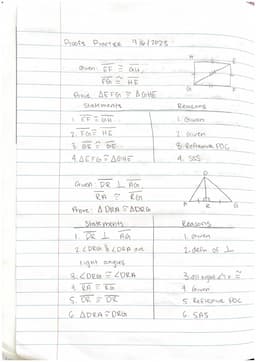 Proofs Practice 9/6/2023
H E
G F
Given: EF ≅ GH,
FG ≅ HE
Prove: △EFG ≅ △GHE
Statements Reasons
1. EF ≅ GH 1. Given
2. FG ≅ HE 2. Given
3. GE ≅ GE 3. Reflexive POC
4. △EFG ≅ △GHE 4. SSS
Given: DR ⊥ AG
RA ≅ RG
Prove: △DRA ≅ △DRG
D
A R G
Statements Reasons
1. DR ⊥ AG 1. Given
2. ∠DRG & ∠DRA are 2. defn of ⊥
right angles
3. ∠DRG ≅ ∠DRA 3. all right ∠'s ≅
4. RA ≅ RG 4. Given
5. DR ≅ DR 5. Reflexive POC
6. △DRA ≅ DRG 6. SAS